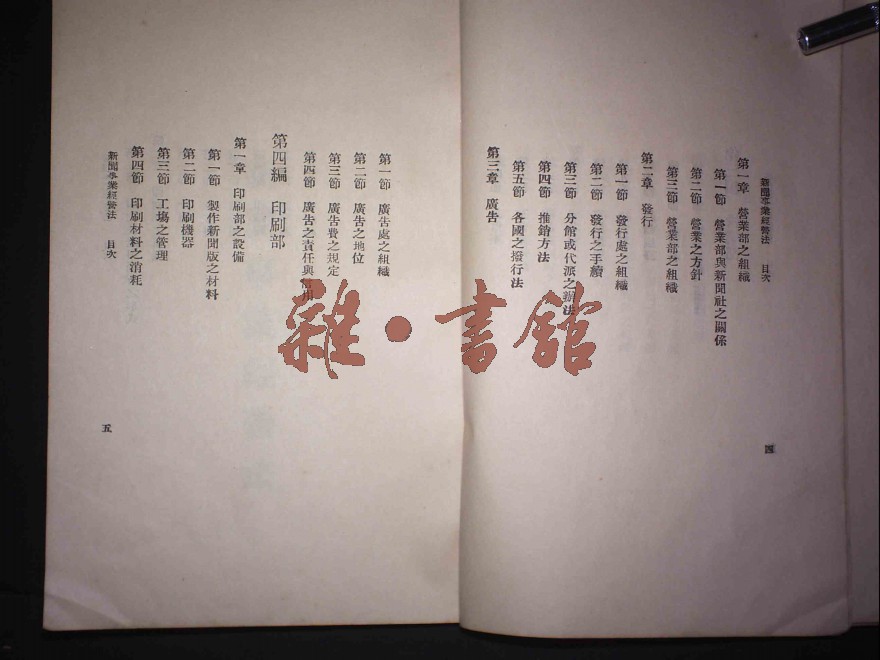 新聞事業經營法 目次
第一章 營業部之組織
第一節 營業部與新聞社之關係
第二節 營業之方針
第三節 營業部之組織
第二章 發行
第一節 發行處之組織
第二節 發行之手續
第三節 分館或代派之辦法
第四節 推銷方法
第五節 各國之發行法
第三章 廣告
四
第一節 廣告處之組織
第二節 廣告之地位
第三節 廣告費之規定
第四節 廣告之責任與信用
第四編 印刷部
第一章 印刷部之設備
第一節 製作新聞版之材料
第二節 印刷機器
第三節 工場之管理
第四節 印刷材料之消耗
新聞事業經營法 目次
五
雜·書館